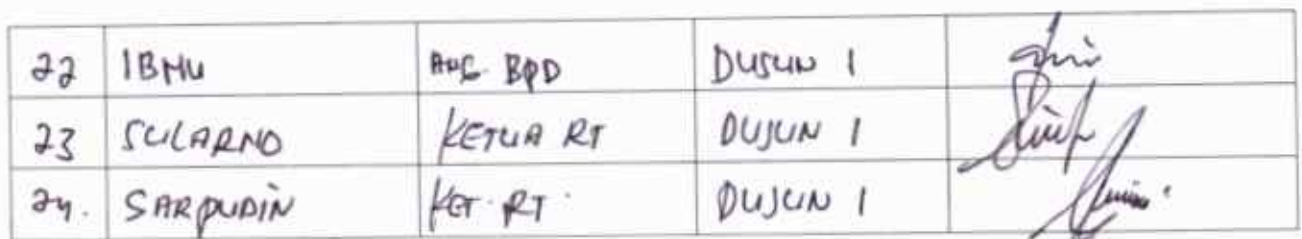 22 IBNU ANG. BPD DUSUN 1
23 SULARNO KETUA RT DUSUN 1
24. SARPUDIN KET. RT. DUSUN 1